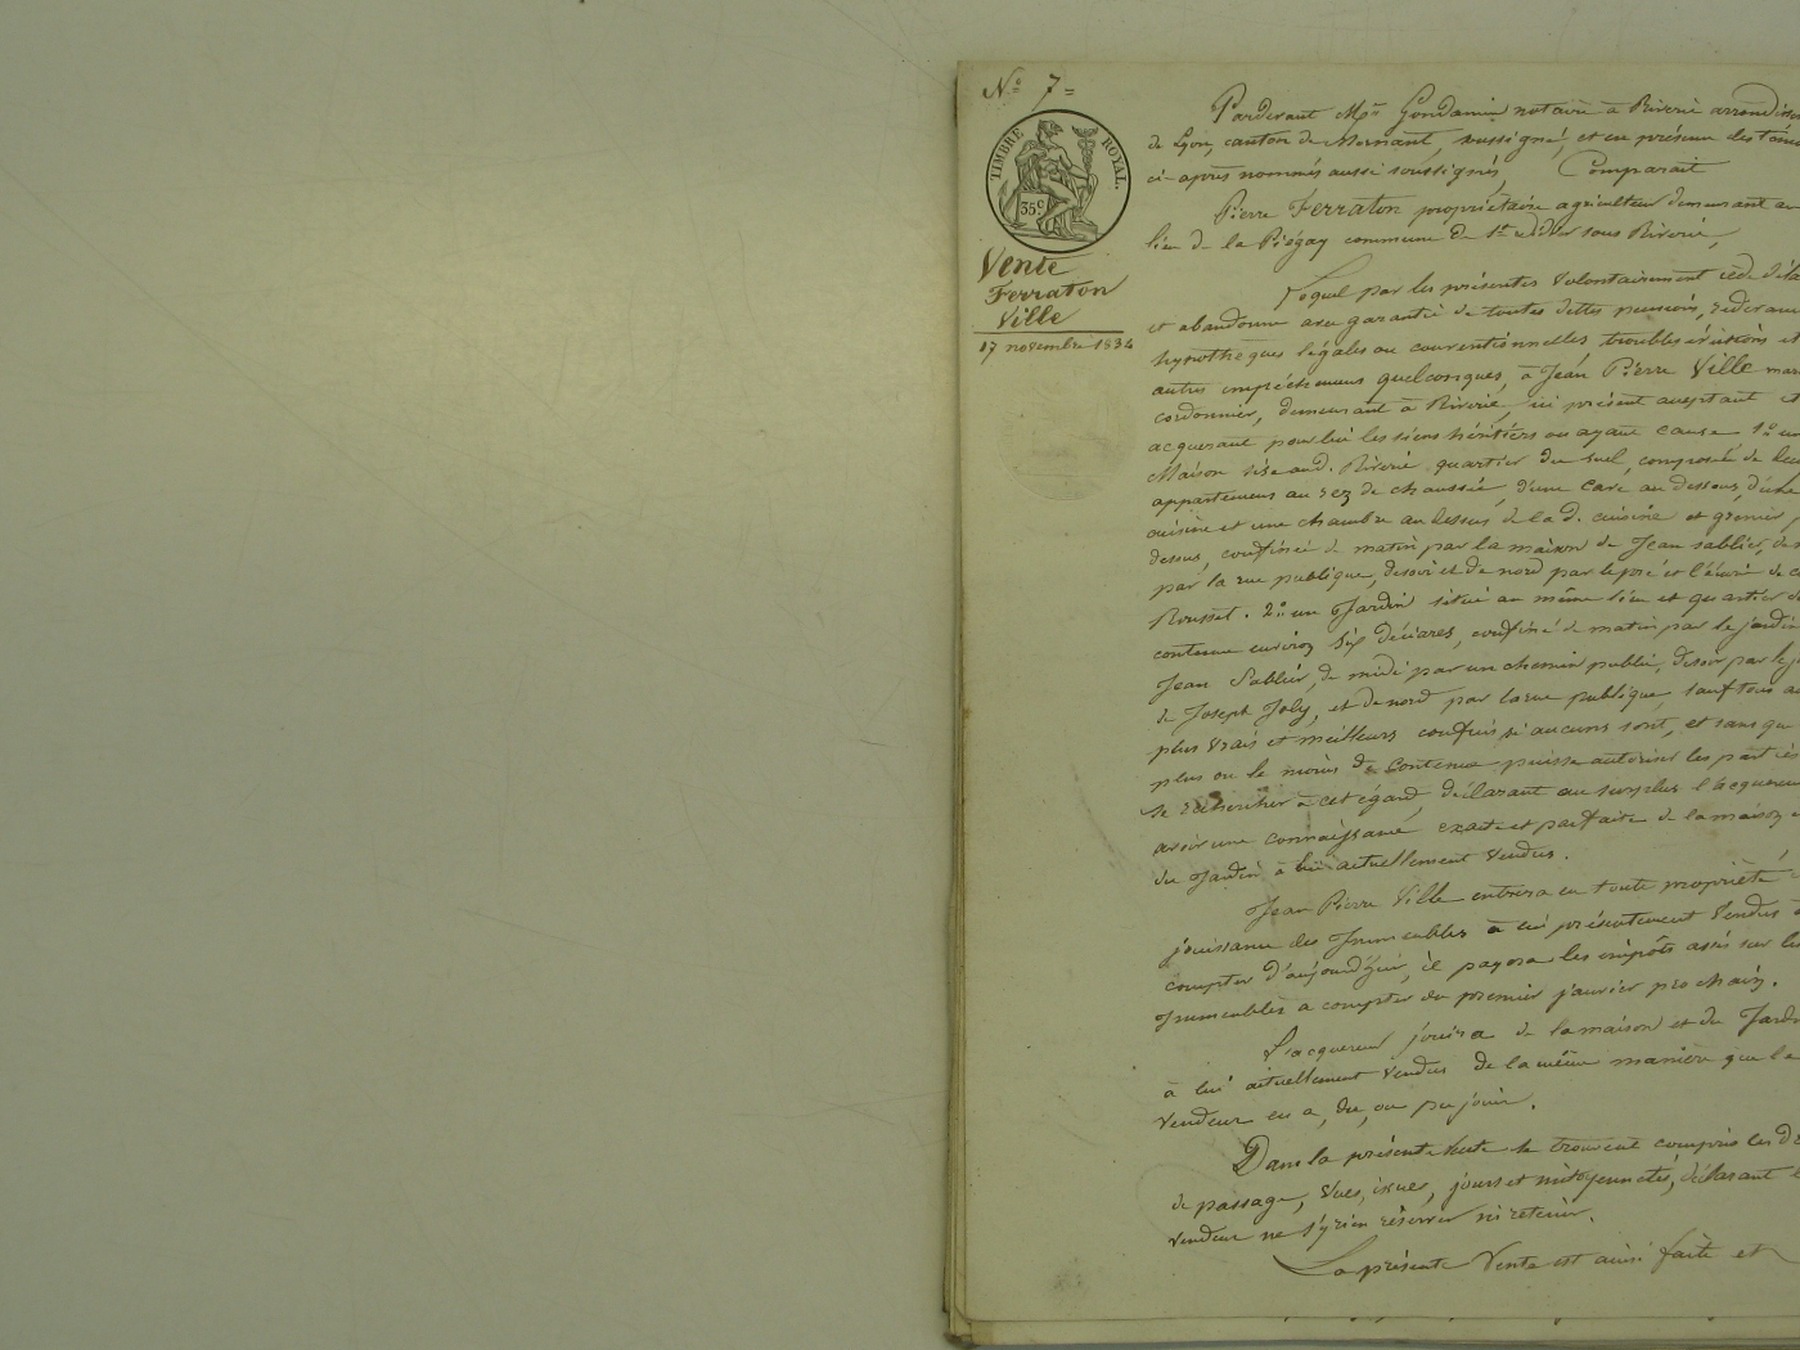 N.o 7=
TIMBRE ROYAL.
35.c
Vente
Ferraton
Ville
17 novembre 1834
Pardevant M.e Gondamin notaire à Riverie arrondiss
de Lyon, canton de Mornant, soussigné, et en présence des témo
ci-après nommés aussi soussignés, Comparait
Pierre Ferraton propriétaire agriculteur demeurant au
lieu de la Piégay commune de St Didier sous Riverie,
Lequel par les présentes volontairement cède déla
et abandonne avec garantie de toutes dettes pensions, redevan
hypothèques légales ou conventionnelles troubles évictions et
autres empêchemens quelconques, à Jean Pierre Ville mar
cordonnier, demeurant à Riverie, ici présent acceptant et
acquerant pour lui les siens héritiers ou ayant cause 1.o un
Maison sise aud. Riverie quartier du suel, composée de deux
appartemens au rez de chaussée, d'une cave au dessous, d'une
cuisine et une chambre au dessus de la d. cuisine et grenier
dessus, confinée de matin par la maison de Jean sablier, de
par la rue publique, de soir et de nord par le pré et l'écurie de
Rousset. 2.o un Jardin situé au même lieu et quartier de
contenue environ six déciares, confiné de matin par le jardin
Jean Sablier, de midi par un chemin public, de soir par le j
de Joseph Joly, et de nord par la rue publique, sauf tous au
plus vrais et meilleurs confins si aucuns sont, et sans que
plus ou le moins de contenue puisse autoriser les parties
se rechercher à cet égard, déclarant au surplus l'acquereur
avoir une connaissance exacte et parfaite de la maison e
du Jardin à lui actuellement vendus.
Jean Pierre Ville entrera en toute propriété
jouissance des Immeubles à lui présentement vendus à
compter d'aujourd'hui, il payera les impôts assis sur les
Immeubles a compter du premier janvier prochain.
L'acquereur jouira de la maison et du Jardin
à lui actuellement vendus de la même manière que le
vendeur en a, du, ou pu jouir.
Dans la présente vente se trouvent compris les dr
de passage, vues, issues, jours et mitoyennetés, déclarant
vendeur ne s'y rien réserver ni retenir.
La présente Vente est ainsi faite et